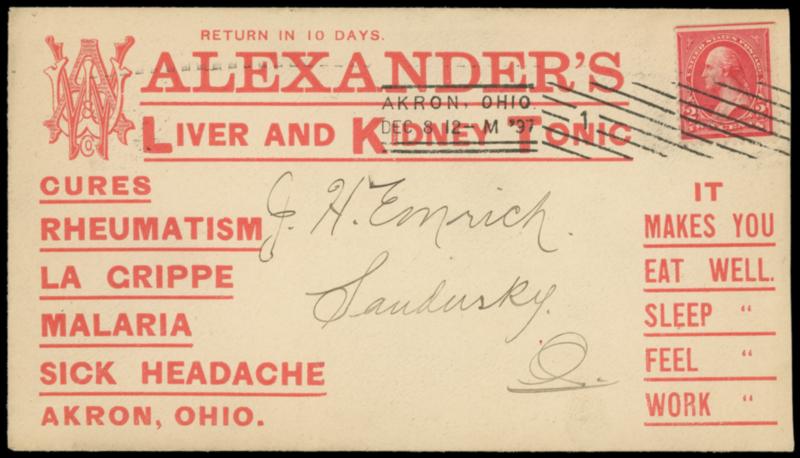 RETURN IN 10 DAYS.
ALEXANDER'S
LIVER AND KIDNEY TONIC
AKRON, OHIO.
DEC 8 12-M '97
1
UNITED STATES POSTAGE
CURES
RHEUMATISM
LA GRIPPE
MALARIA
SICK HEADACHE
AKRON, OHIO.
J. H. Emrich.
Sandusky.
O.
IT
MAKES YOU
EAT WELL.
SLEEP "
FEEL "
WORK "